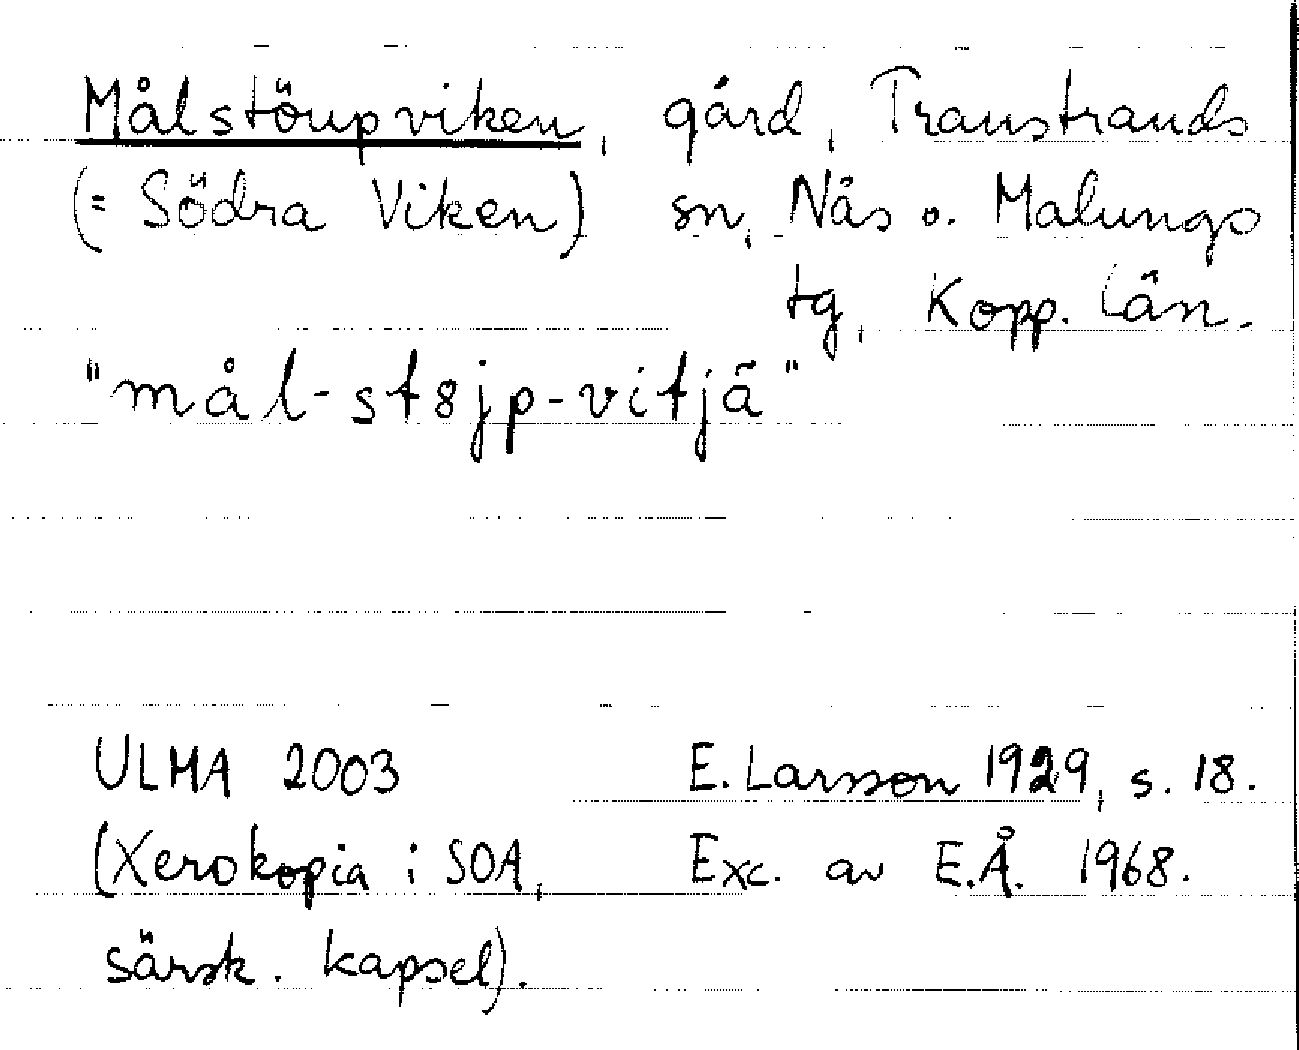 Målstöupviken, gård, Transtrands
(= Södra Viken) sn, Nås o. Malungs
tg, Kopp. län.
"mål-st8jp-vitjä"
ULMA 2003 E. Larsson 1929, s. 18.
(Xerokopia i SOA, Exc. av E.Å. 1968.
särsk. kapsel).